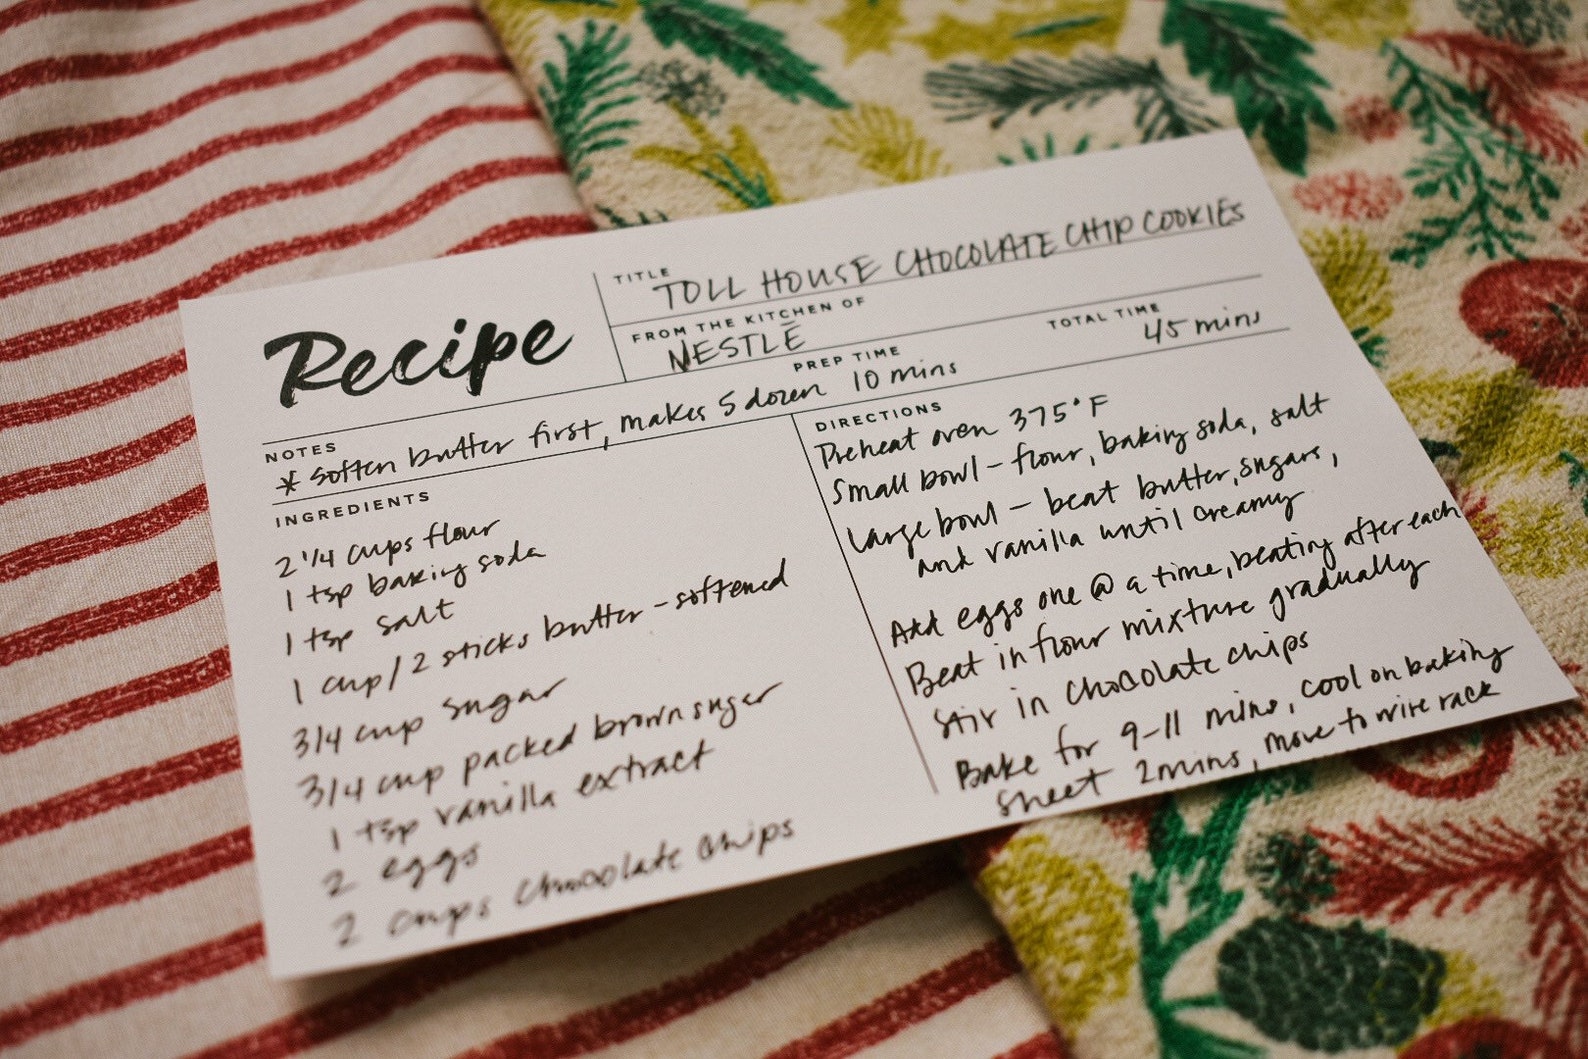 Recipe
TITLE
TOLL HOUSE CHOCOLATE CHIP COOKIES
FROM THE KITCHEN OF
NESTLĒ
PREP TIME
10 mins
TOTAL TIME
45 mins
NOTES
* soften butter first, makes 5 dozen
INGREDIENTS
2 1/4 cups flour
1 tsp baking soda
1 tsp salt
1 cup/2 sticks butter - softened
3/4 cup sugar
3/4 cup packed brown sugar
1 tsp vanilla extract
2 eggs
2 cups chocolate chips
DIRECTIONS
Preheat oven 375°F
Small bowl - flour, baking soda, salt
Large bowl - beat butter, sugars,
and vanilla until creamy
Add eggs one @ a time, beating after each
Beat in flour mixture gradually
Stir in chocolate chips
Bake for 9-11 mins, cool on baking
sheet 2 mins, move to wire rack